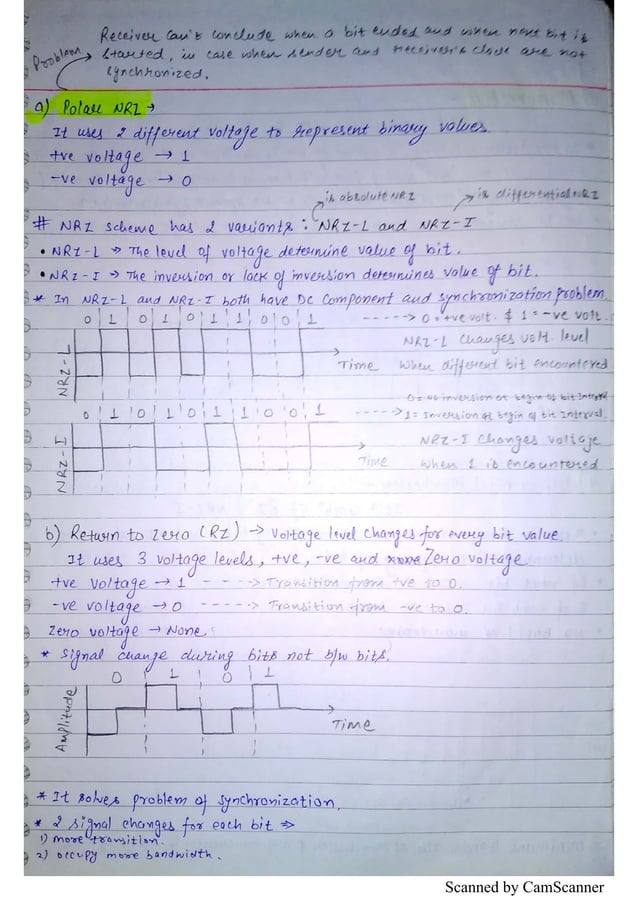 Receiver can't conclude when a bit ended and when next bit is
Problem started, in case when sender and receiver's clock are not
synchronized.
a) Polar NRZ →
It uses 2 different voltage to represent binary values.
+ve voltage → 1
-ve voltage → 0
is absolute NRZ is differential NRZ
# NRZ scheme has 2 variants : NRZ-L and NRZ-I
• NRZ-L → The level of voltage determine value of bit.
• NRZ-I → The inversion or lack of inversion determines value of bit.
* In NRZ-L and NRZ-I both have DC component and synchronization problem.
0 1 0 1 0 1 1 0 0 1 -----> 0 = +ve volt. & 1 = -ve volt.
NRZ-L changes volt. level
NRZ-L Time when different bit encountered
0 = no inversion at begin of bit Interval
0 1 1 0 1 0 1 0 0 1 ----> 1 = Inversion at begin of bit Interval.
NRZ-I changes voltage
NRZ-I Time when 1 is encountered
b) Return to zero (RZ) → Voltage level changes for every bit value.
It uses 3 voltage levels, +ve, -ve and Zero voltage
+ve voltage → 1 - - - -> Transition from +ve to 0.
-ve voltage → 0 -----> Transition from -ve to 0.
Zero voltage → None.
* Signal change during bits not b/w bits.
0 1 0 1
Amplitude Time
* It solves problem of synchronization.
* 2 signal changes for each bit ⇒
1) more transition.
2) occupy more bandwidth.
Scanned by CamScanner